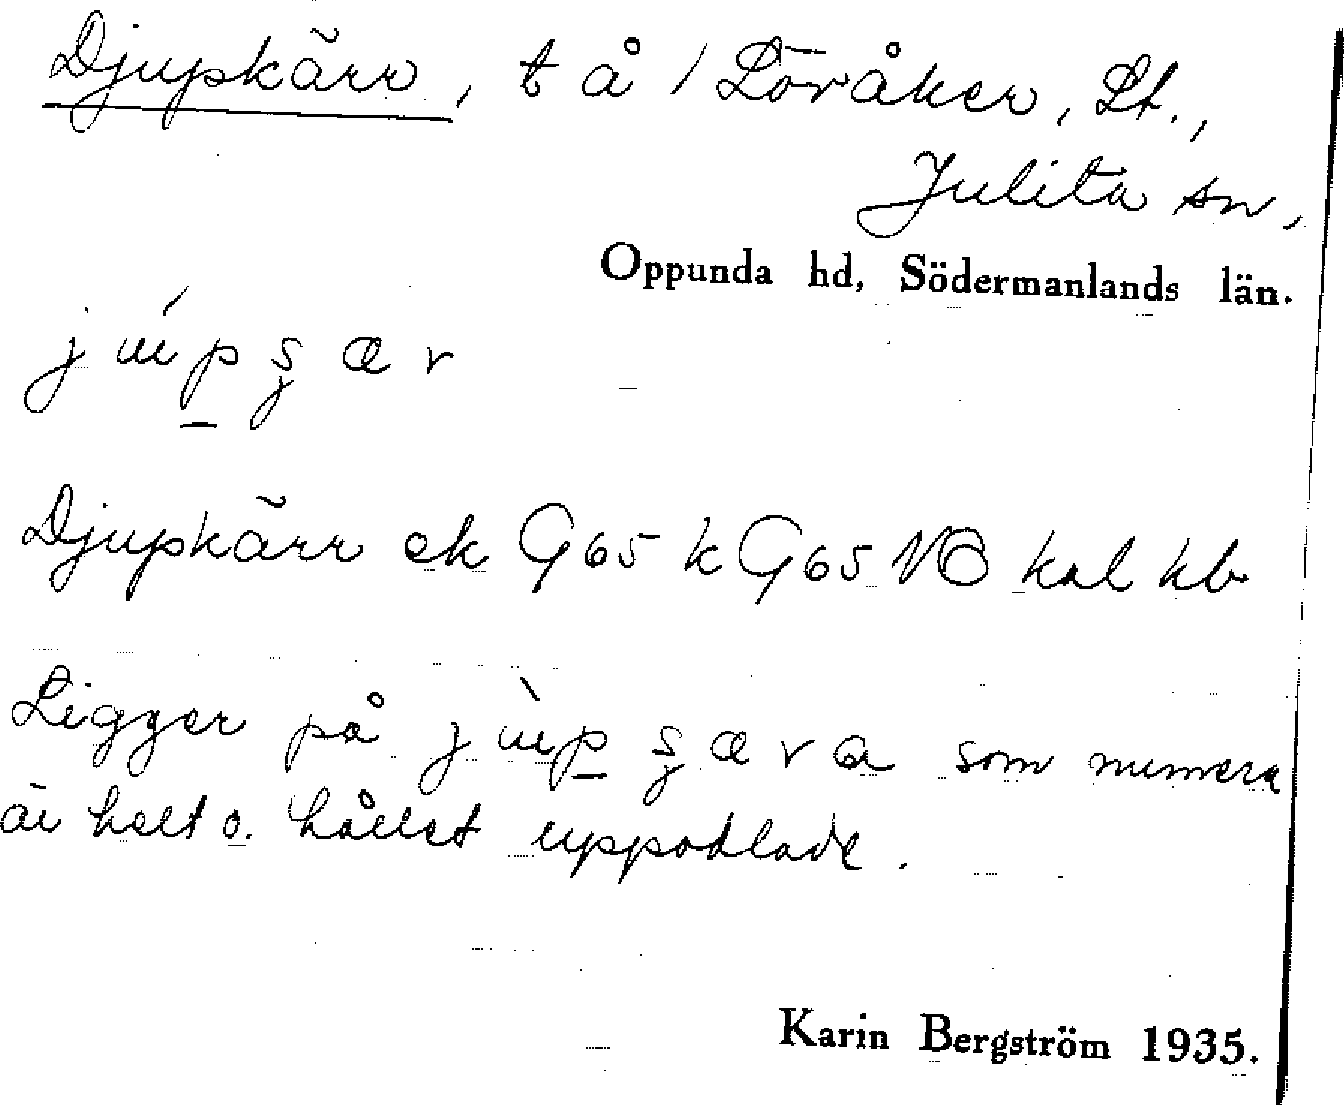 Djupkärr, t å / Löråker, Lt.,
Julita sn,
Oppunda hd, Södermanlands län.
júpʂær
Djupkärr ek G65 k G65 NB kal kb
Ligger på jùpʂæra som numera
är helt o. hållet uppodlade.
Karin Bergström 1935.